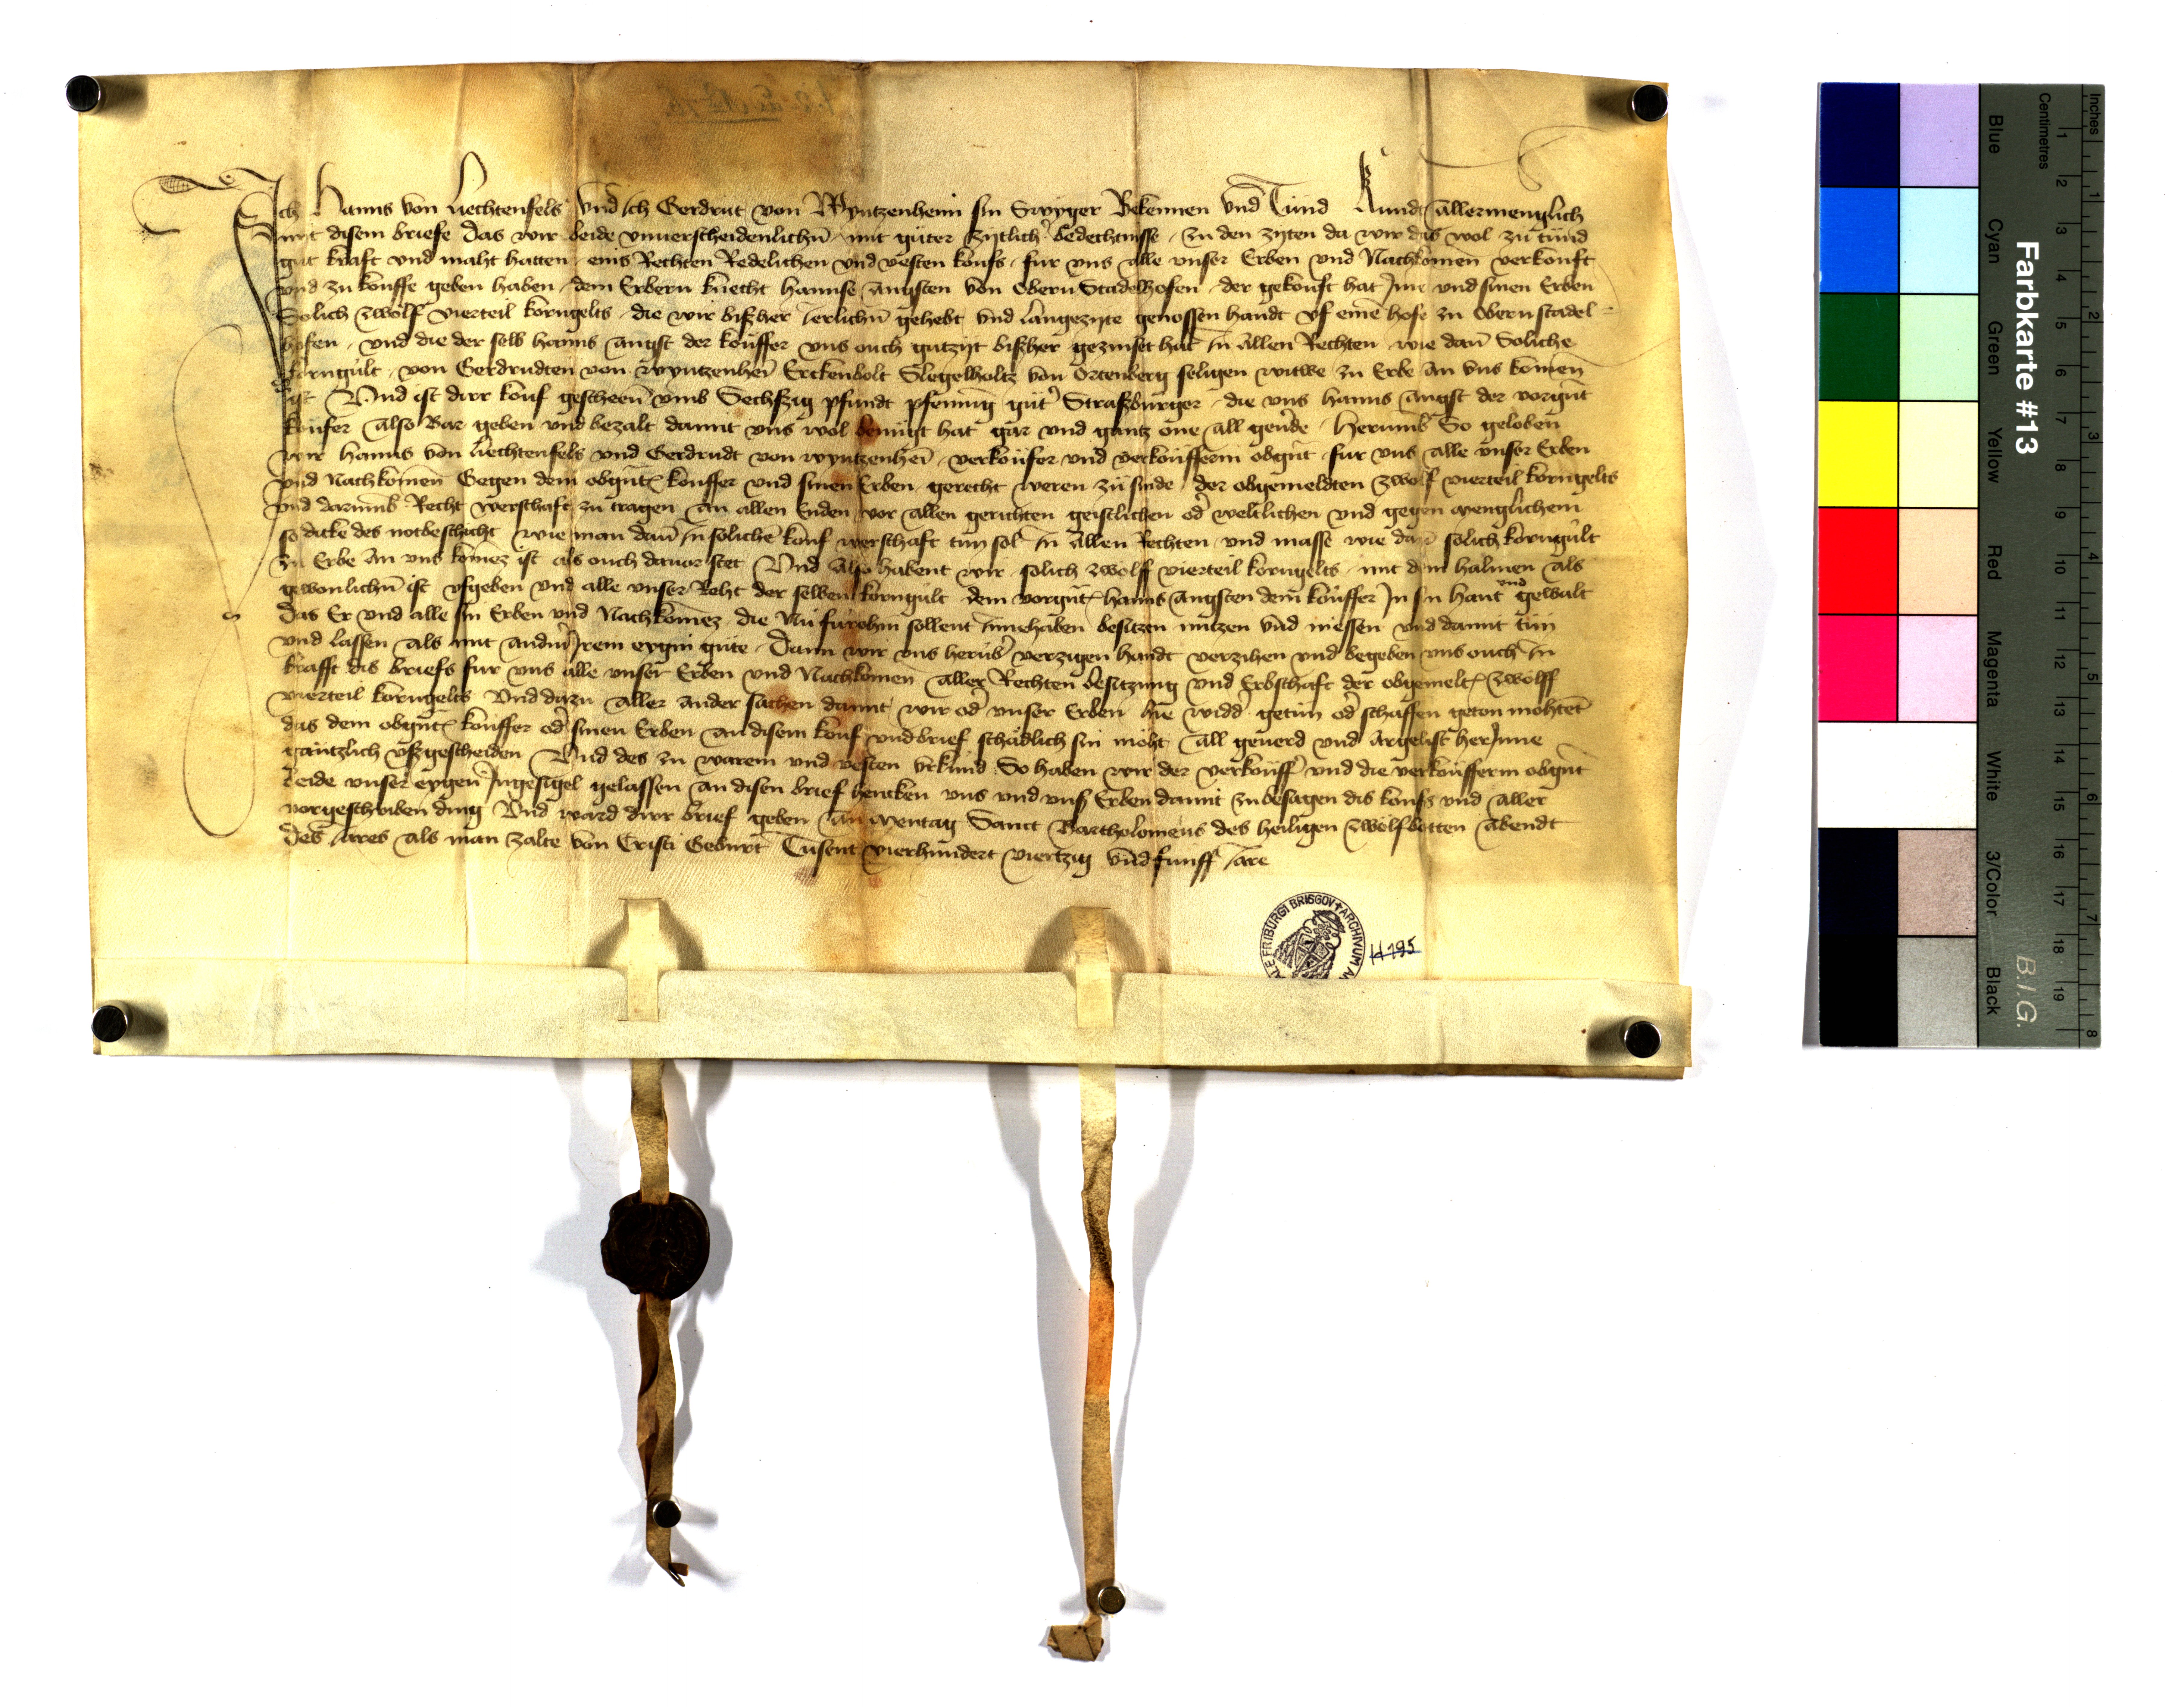 Ich Hanns von Liechtenfels vnd ich Gerdrut von Wyntzenheim sin Swyger Bekennen vnd Tůnd Kundt allermenglich
mit disem briefe das wir beide vnuerscheidenlichn̄ mit gůter zytlich' bedechtnisse zu den zyten da wir das wol zů tůnd
gůt kraft vnd maht hatten eins Rechten Redelichen vnd vesten koufs fur vns alle vnser Erben vnd Nachkomen verkouft
vnd zu kouffe geben haben dem Erbern knecht hannse angsten von Obern Stadelhofen der gekouft hat Jme vnd sinen Erben
Solich zwölf vierteil korngelts die wir bißher ierlichn̄ gehebt vnd langezyte genossen handt vf eine hofe zu Obernstadel-
hofen vnd die der selb hanns angst der kouffer vns ouch gutzyt bißher gezinset hat in allen Rechten wie dan̄ Soliche
korngúlt von Gerdrudten von wyntzenhei Erckenbolt Slegelholtz von Ortenberg seligen witwe zu Erbe an vns komen
ist Vnd ist dirr kouf gescheen vmb Sechßig pfundt pfenning gůt' Straßburger die vns hanns angst der vorgn̄t
kouffer also Bar geben vnd bezalt damit vns wol benůgt hat gar vnd gantz one all geu'de Herumb So geloben
wir hanns von Liechtenfels vnd Gerdrudt von wyntzenhei verkoúfer vnd verkoúfferin obgn̄t fur vns alle vnser Erben
vnd Nachkomen Gegen dem obgn̄t kouffer vnd sinen Erben gerecht weren zů sinde der obgemeldten zwölf vierteil korngelts
vnd darumb Recht werschaft zu tragen an allen Enden vor allen gerichten geistlichen od' weltlichen vnd gegen menglichem
so dicke des notbeschicht wie man dan̄ in soliche kouf werschaft tun sol in allen Rechten vnd masse wie dan̄ solich korngúlt
zu Erbe an vns komez ist als ouch dauor stet Vnd also habent wir solich zwölff vierteil korngelts mit dem halmen als
gewonlichn̄ ist vfgeben vnd alle vnser Reht der selben korngúlt dem vorgn̄t hanns angsten dem kouffer Jn sin hant vnd gewalt
das Er vnd alle sin Erben vnd Nachkomez die Nu fúrohin sollent innehaben besitzen nützen vnd niessen vnd damit tůn
vnd lassen als mit andn̄ Jrem eygin gůte Dann wir vns herúb' verzigen handt verzihen vnd begeben vns ouch in
krafft dis briefs fur vns alle vnser Erben vnd Nachkomen aller Rechten besitzung vnd Erbschaft der obgemelt zwölff
vierteil korngelts Vnd dazu aller ander sachen damit wir od' vnser Erben hie widd' getůn od' schaffen geton möhtet
das dem obgn̄t kouffer od' sinen Erben an disem kouf vnd brief schädlich sin möht all geuerd vnd argelist herJnne
gäntzlich vßgescheiden Vnd des zu warem vnd vesten vrkúnd So haben wir der verkoúff' vnd die verkoúfferin obgn̄t
beide vnser eygen Jngesigel gelassen an disen brief hencken vns vnd vnß Erben damit zu besagen dis koufs vnd aller
vorgeschriben ding Vnd ward dirr brief geben an mentag Sanct Bartholomeus des heiligen zwölfbotten abendt
des iares als man zalte von Cristi Geburt Tusent vierhundert viertzig vnd fünff iare
FRIBURGI BRISGOV ✝ ARCHIVUM
H 195
Farbkarte #13
B.I.G.
Inches 1 2 3 4 5 6 7 8
Centimetres 1 2 3 4 5 6 7 8 9 10 11 12 13 14 15 16 17 18 19
Blue Cyan Green Yellow Red Magenta White 3/Color Black